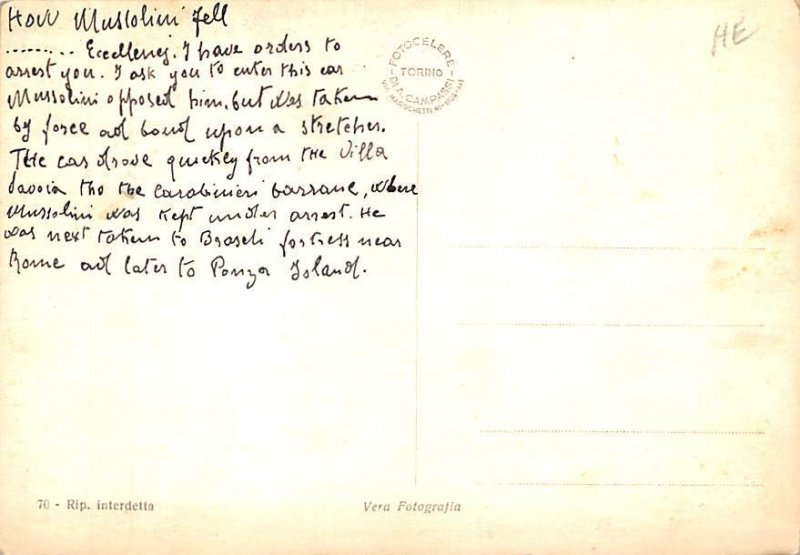 How Mussolini fell
......... Eccellency. I have orders to
arrest you. I ask you to enter this car
Mussolini opposed him, but was taken
by force ad bound upon a stretcher.
The car drove quickey from the Villa
Savoia tho the carabinieri barrane, where
Mussolini was kept under arrest. He
was next taken to Braschi fortress near
Rome ad later to Ponza Island.
HE
FOTOCELERE
TORINO
DI A. CAMPASSI
70 - Rip. interdetta
Vera Fotografia